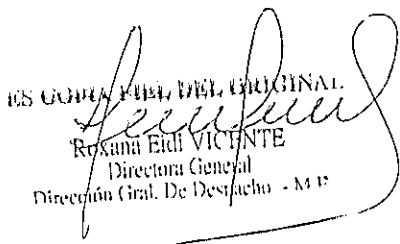 ES COPIA FIEL DEL ORIGINAL
Roxana Eidi VICENTE
Directora General
Dirección Gral. De Despacho - M.P.